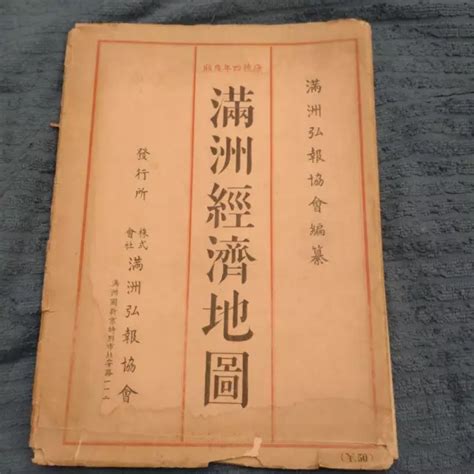 滿洲弘報協會編纂
康德四年度版
滿洲經濟地圖
發行所
株式會社 滿洲弘報協會
滿洲國新京特別市
(¥.50)